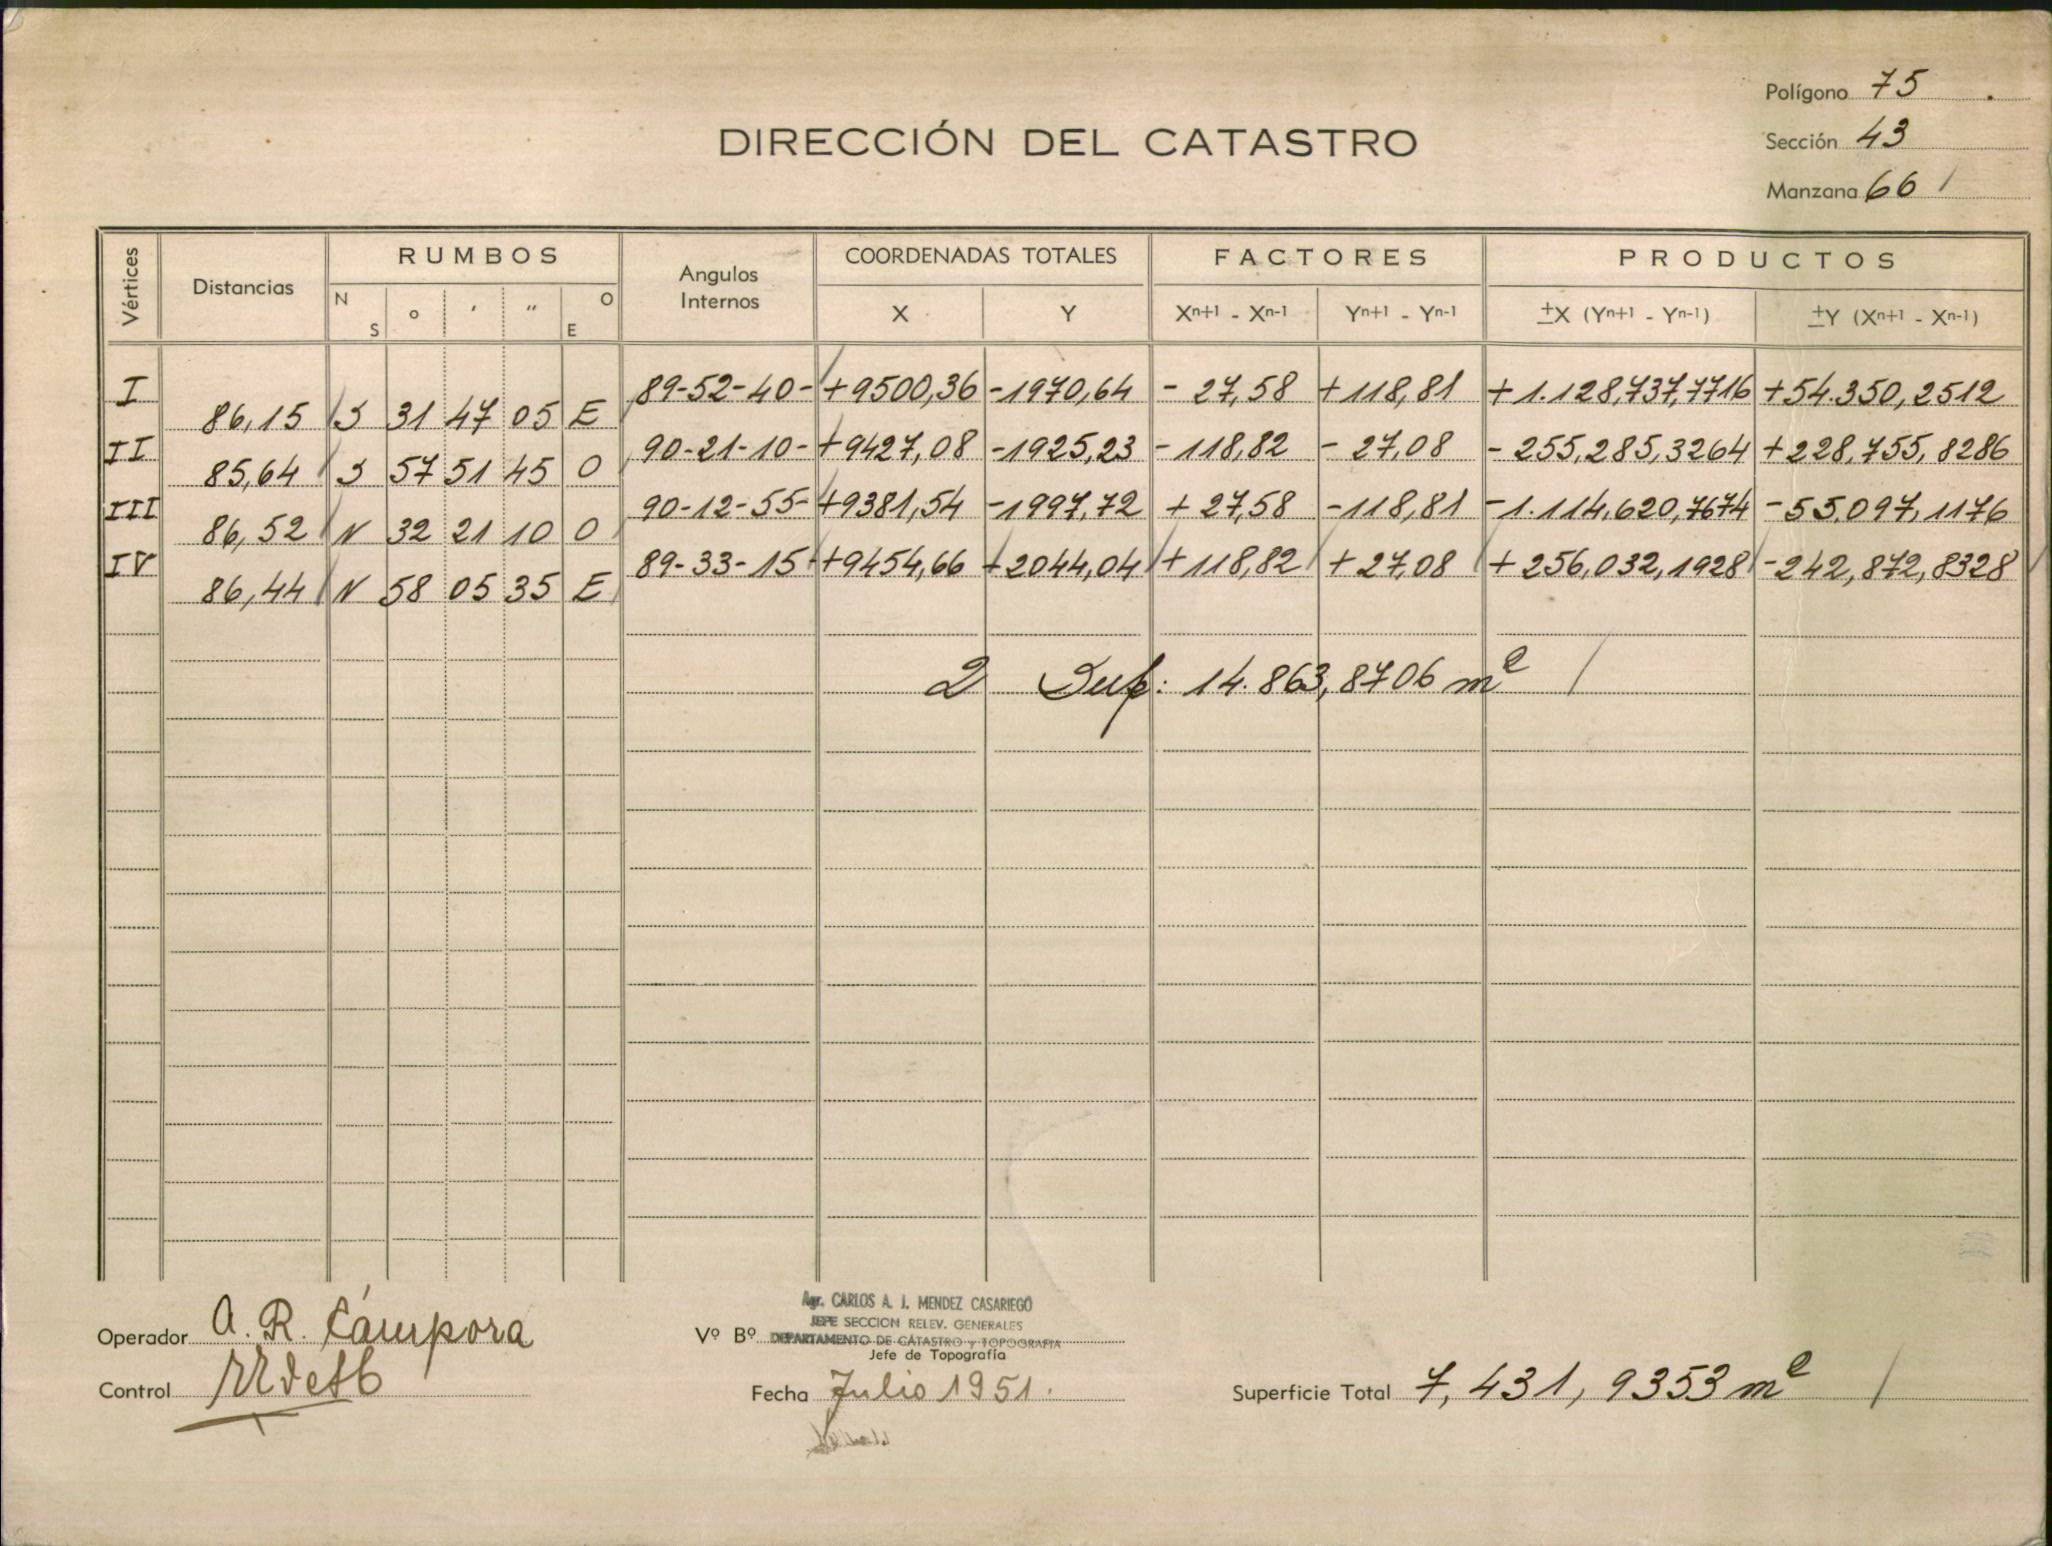 Polígono 75
DIRECCIÓN DEL CATASTRO
Sección 43
Manzana 66
Vértices Distancias RUMBOS Angulos Internos COORDENADAS TOTALES FACTORES PRODUCTOS
N S o ' " O E X Y Xn+1 - Xn-1 Yn+1 - Yn-1 ±X (Yn+1 - Yn-1) ±Y (Xn+1 - Xn-1)
I 89-52-40- +9500,36 -1970,64 - 27,58 +118,81 +1.128,737,7716 +54.350,2512
86,15 S 31 47 05 E
II 90-21-10- +9427,08 -1925,23 -118,82 - 27,08 -255,285,3264 +228,755,8286
85,64 S 57 51 45 O
III 90-12-55- +9381,54 -1997,72 + 27,58 -118,81 -1.114,620,7674 -55.097,1176
86,52 N 32 21 10 O
IV 89-33-15 +9454,66 +2044,04 +118,82 +27,08 +256,032,1928 -242,872,8328
86,44 N 58 05 35 E
2 Sup: 14.863,8706 m2
Operador A. R. Cámpora
Control
Vº Bº Agr. CARLOS A. J. MENDEZ CASARIEGO
JEFE SECCION RELEV. GENERALES
DEPARTAMENTO DE CATASTRO y TOPOGRAFIA
Jefe de Topografía
Fecha Julio 1951.
Superficie Total 7,431,9353 m2